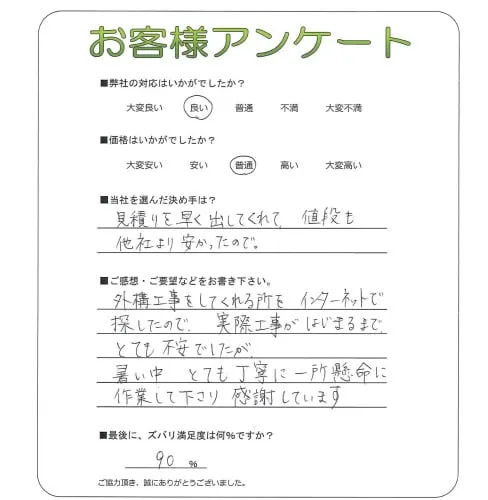 お客様アンケート
■弊社の対応はいかがでしたか?
大変良い 良い 普通 不満 大変不満
■価格はいかがでしたか?
大変安い 安い 普通 高い 大変高い
■当社を選んだ決め手は?
見積りを早く出してくれて、値段も
他社より安かったので。
■ご感想・ご要望などをお書き下さい。
外構工事をしてくれる所を インターネットで
探したので、実際工事がはじまるまで、
とても不安でしたが、
暑い中 とても丁寧に一所懸命に
作業して下さり 感謝しています
■最後に、ズバリ満足度は何%ですか?
90 %
ご協力頂き、誠にありがとうございました。